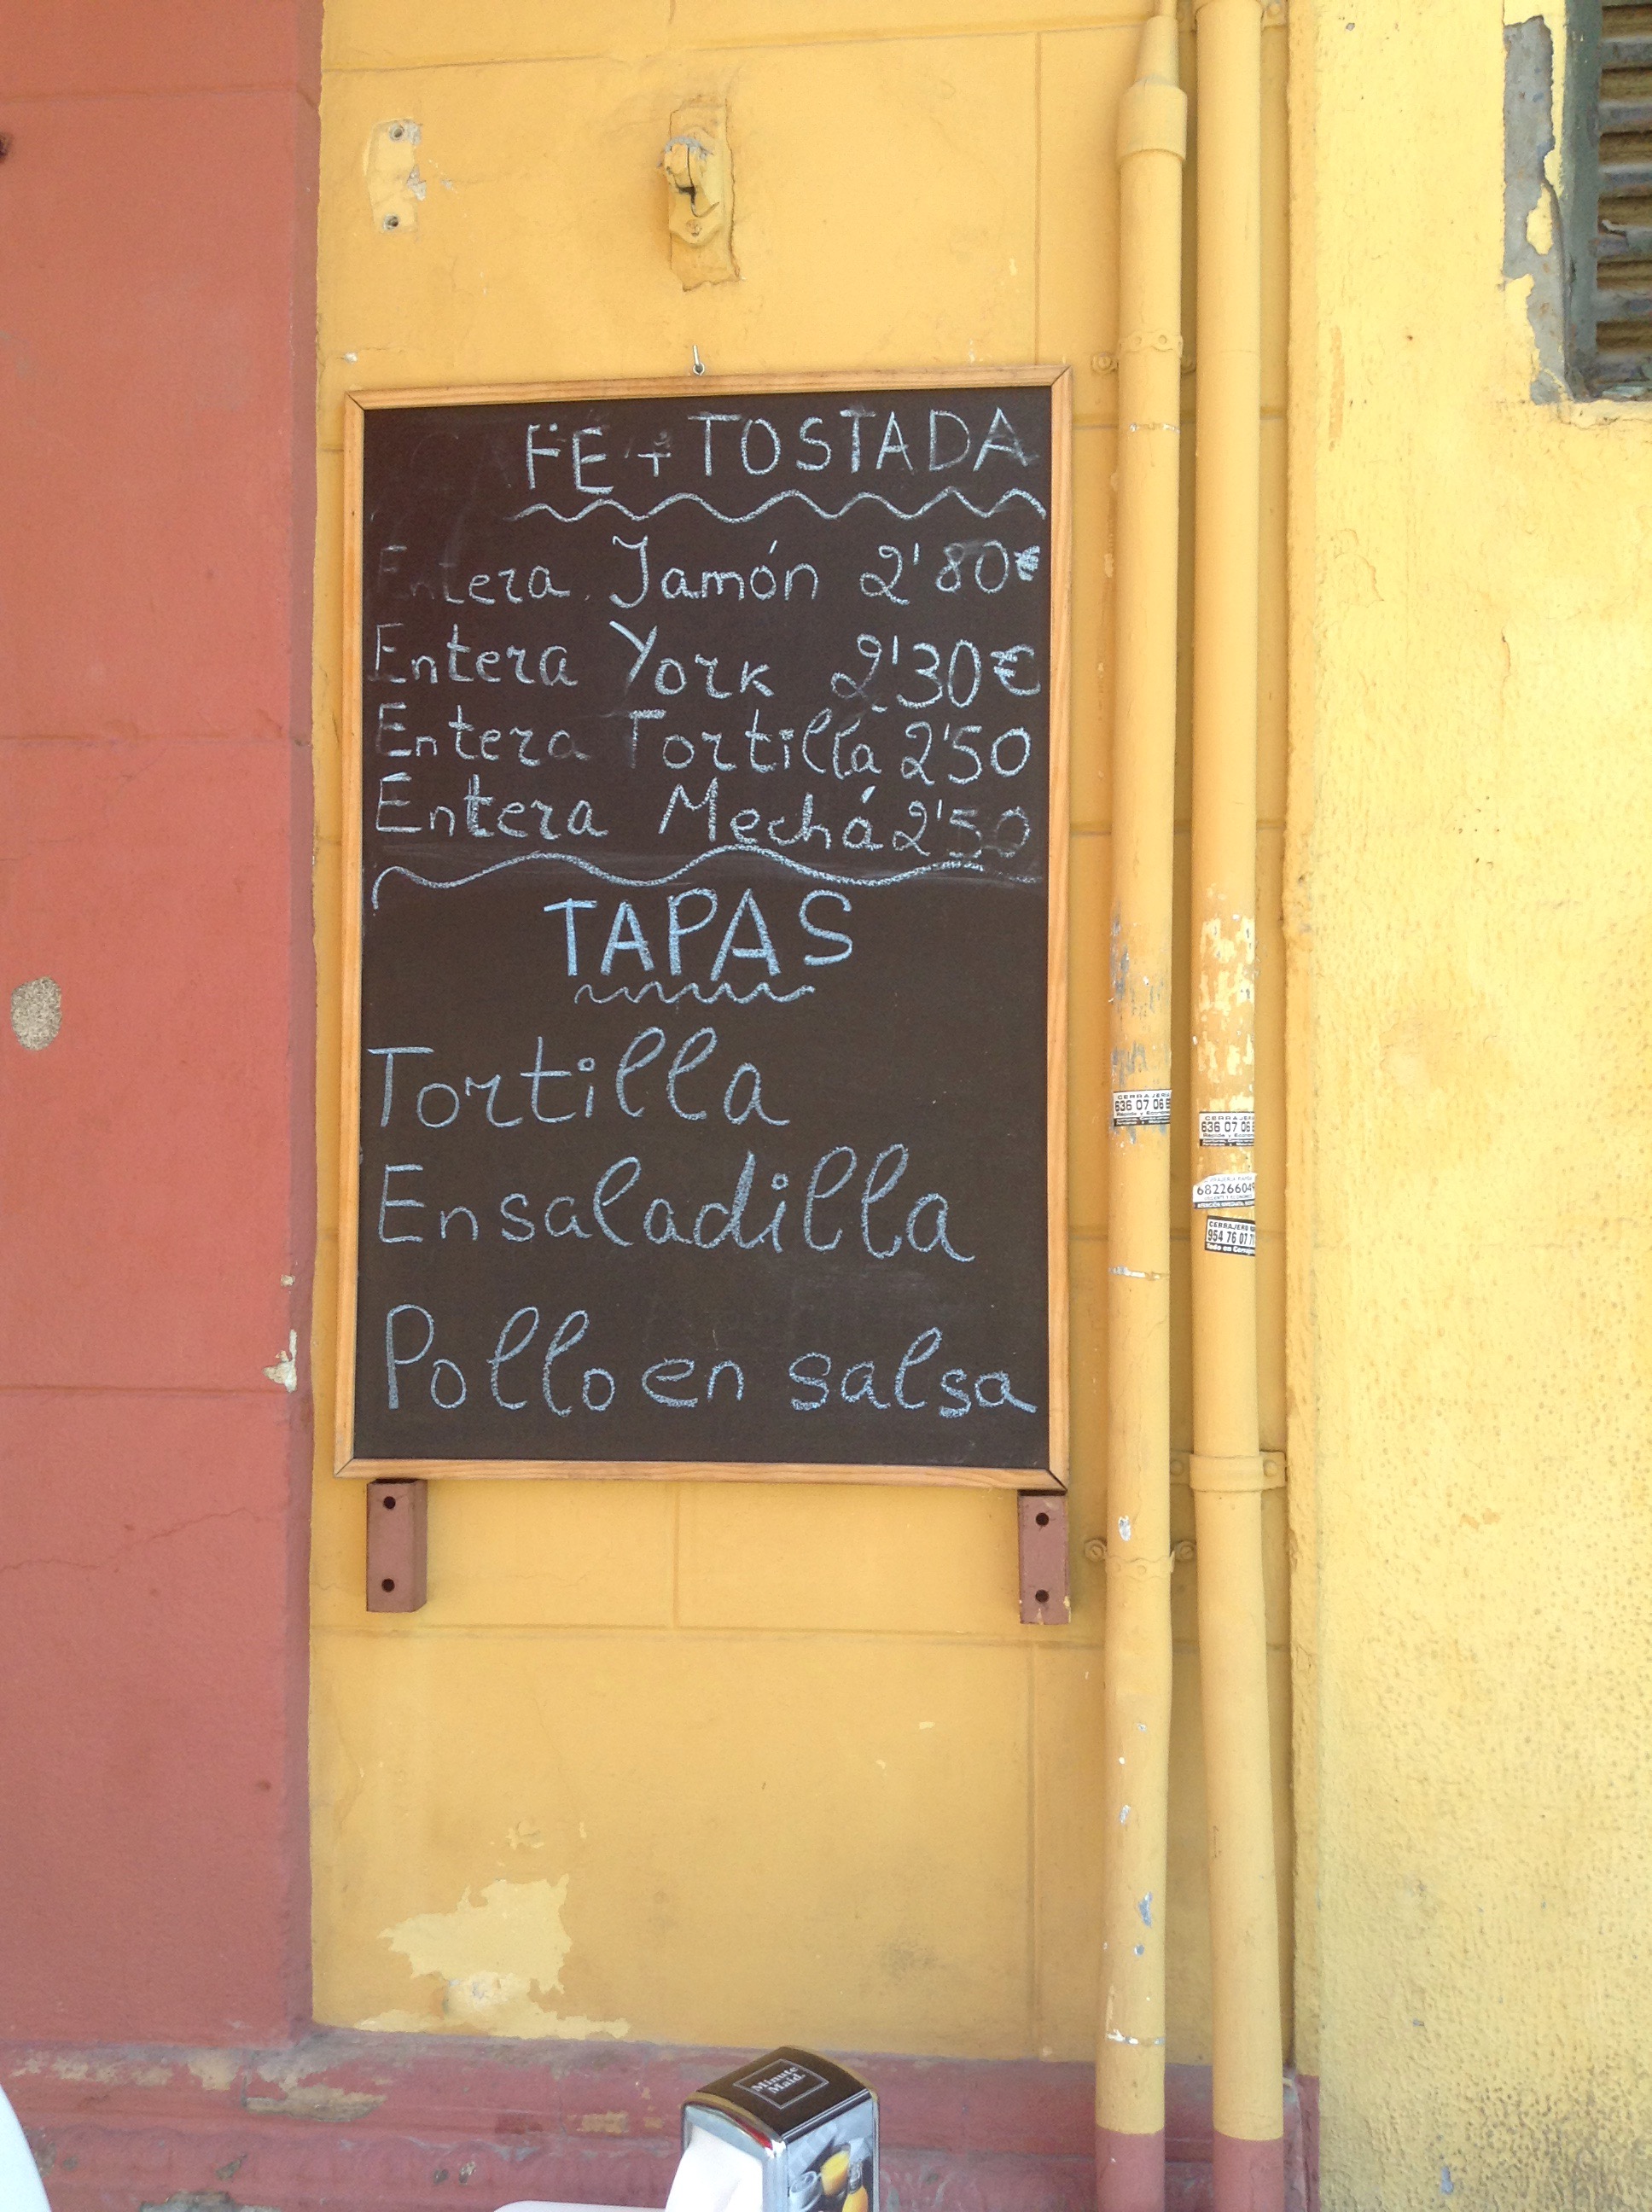 FE + TOSTADA
Entera Jamón 2'80€
Entera York 2'30€
Entera Tortilla 2'50
Entera Mechá 2'50
TAPAS
Tortilla
Ensaladilla
Pollo en salsa
CERRAJERI
636 07 06
CERRAJER
636 07 06
68226604
CERRAJERO
954 76 07 7
Minute
Maid